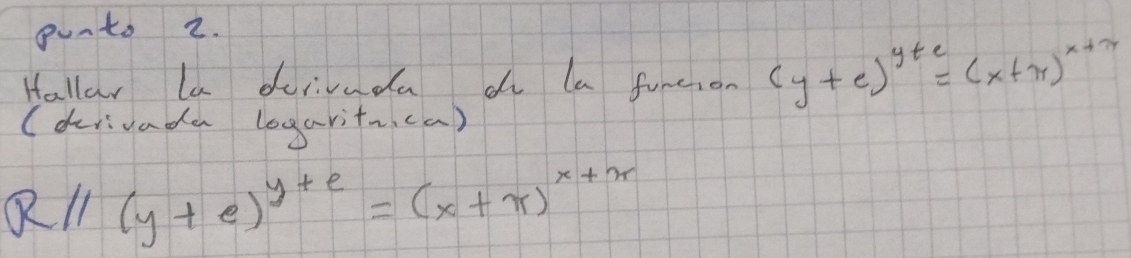 punto 2.
Hallar la derivada de la funcion (y+e)^{y+e} = (x+π)^{x+π}
(derivada logaritmica)
R// (y+e)^{y+e} = (x+π)^{x+π}